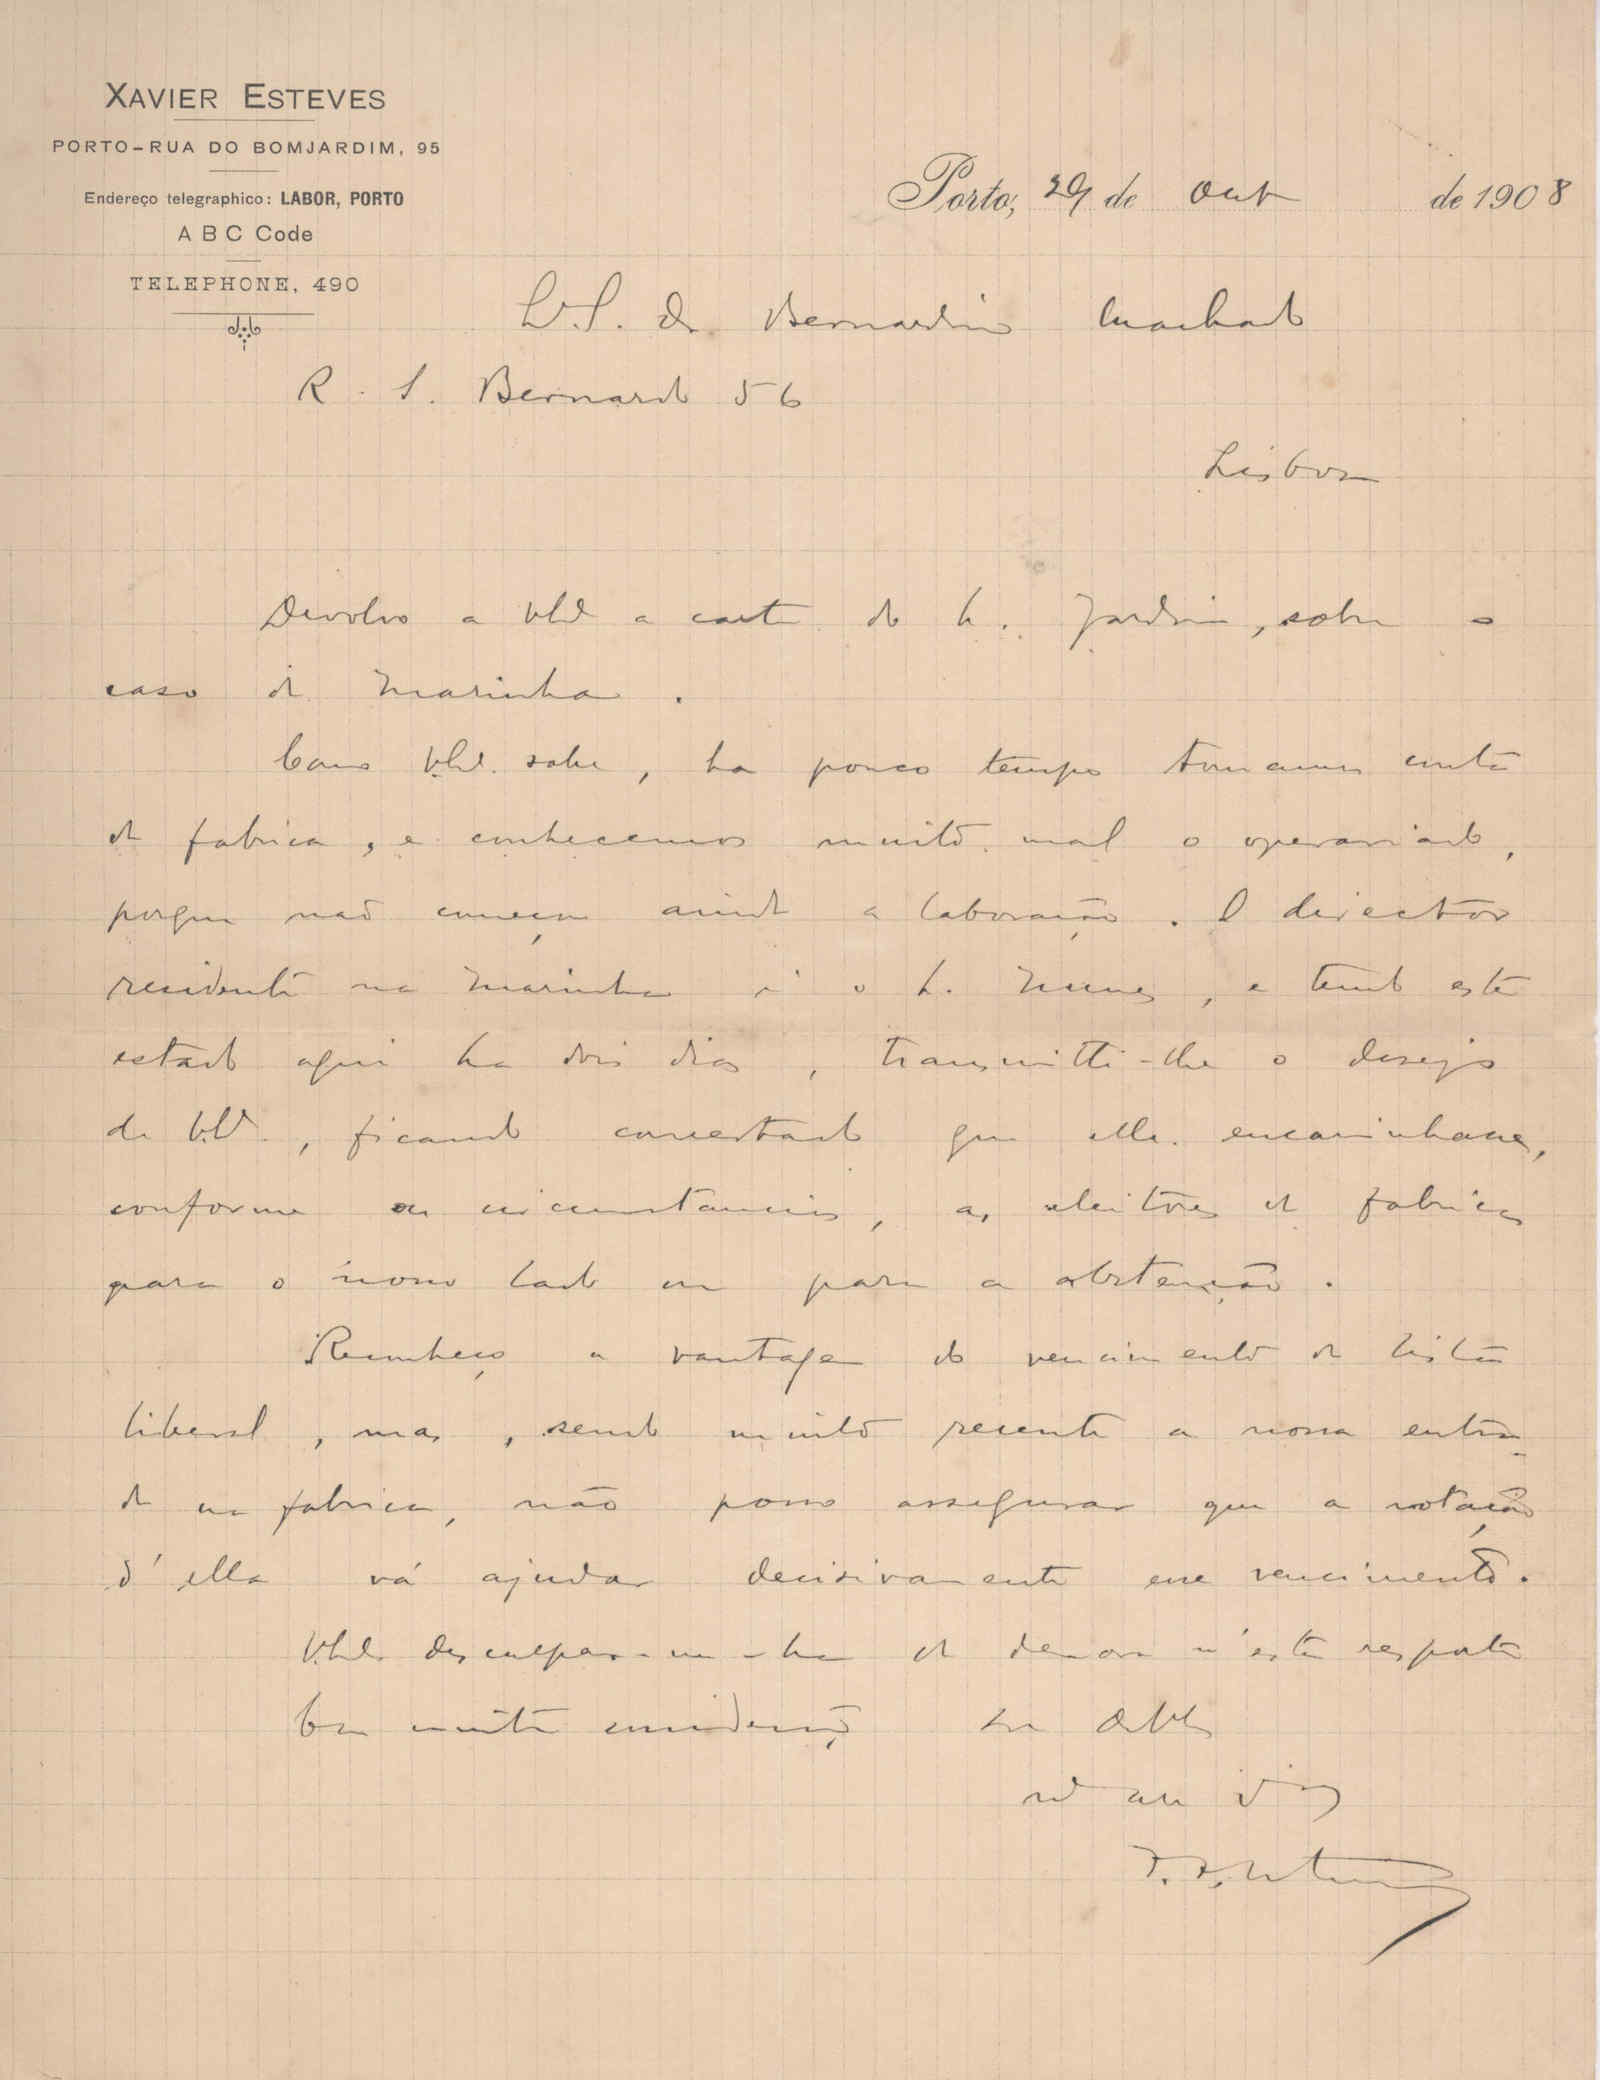 XAVIER ESTEVES
PORTO-RUA DO BOMJARDIM, 95
Endereço telegraphico: LABOR, PORTO
A B C Code
TELEPHONE, 490
Porto, 29 de Out de 1908
Dr. Bernardino Machado
R. S. Bernardo 56
Lisboa
Devolvo a VEx a carta do Sr. Jardim, sobre o
caso da Marinha.
Como VEx. sabe, ha pouco tempo tomamos conta
da fabrica, e conhecemos muito mal o operariado,
porque não começou ainda a laboração. O director
residente na Marinha é o Sr. Nunes, e tendo este
estado aqui ha dois dias, transmitti-lhe o desejo
de VEx., ficando concertado que elle encaminhasse,
conforme as circumstancias, os eleitores da fabrica
para o nosso lado ou para a abstenção.
Reconheço a vantagem do vencimento da lista
liberal, mas, sendo muito recente a nossa entra-
da na fabrica, não posso assegurar que a votação
d'ella vá ajudar decisivamente esse vencimento.
VEx. desculpar-me-ha da demora n'esta resposta
Com muita consideração De VEx